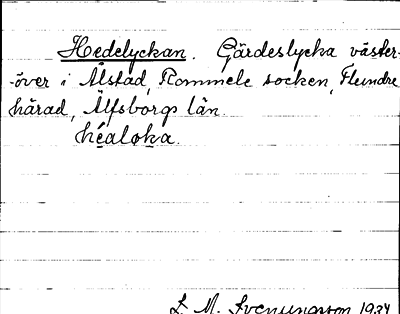 Hedelyckan. Gärdeslycka väster-
-över i Ålstad, Rommele socken, Flundre
härad, Älfsborgs län.
héaloka.
L. M. Svenungsson 1934